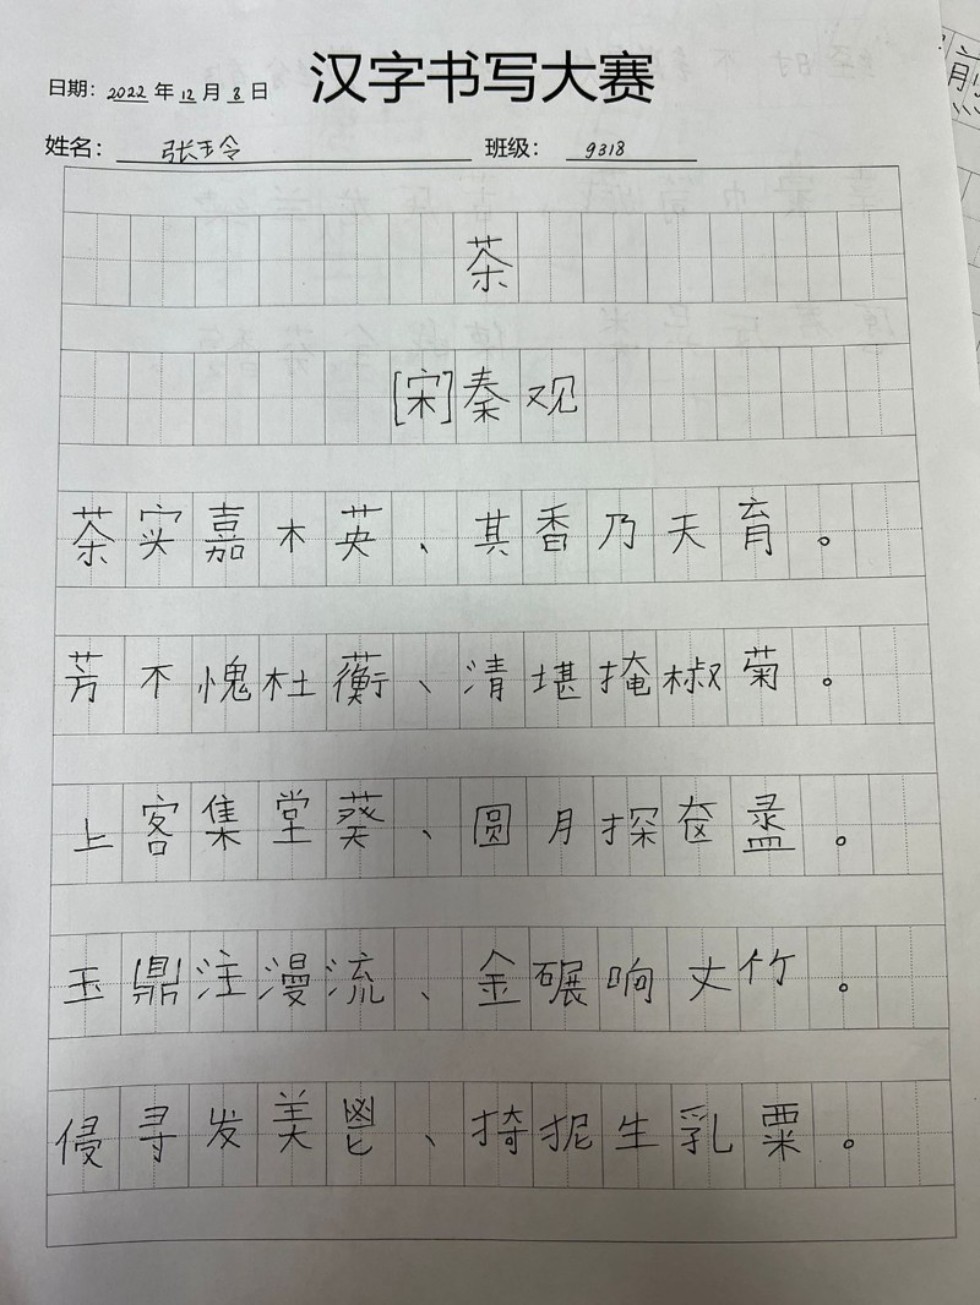 汉字书写大赛
日期：2022年12月8日
姓名：张玉令 班级：9318
茶
[宋]秦观
茶实嘉木英、其香乃天育。
芳不愧杜蘅、清堪掩椒菊。
上客集堂葵、圆月探奁盝。
玉鼎注漫流、金碾响丈竹。
侵寻发美鬯、猗抳生乳粟。